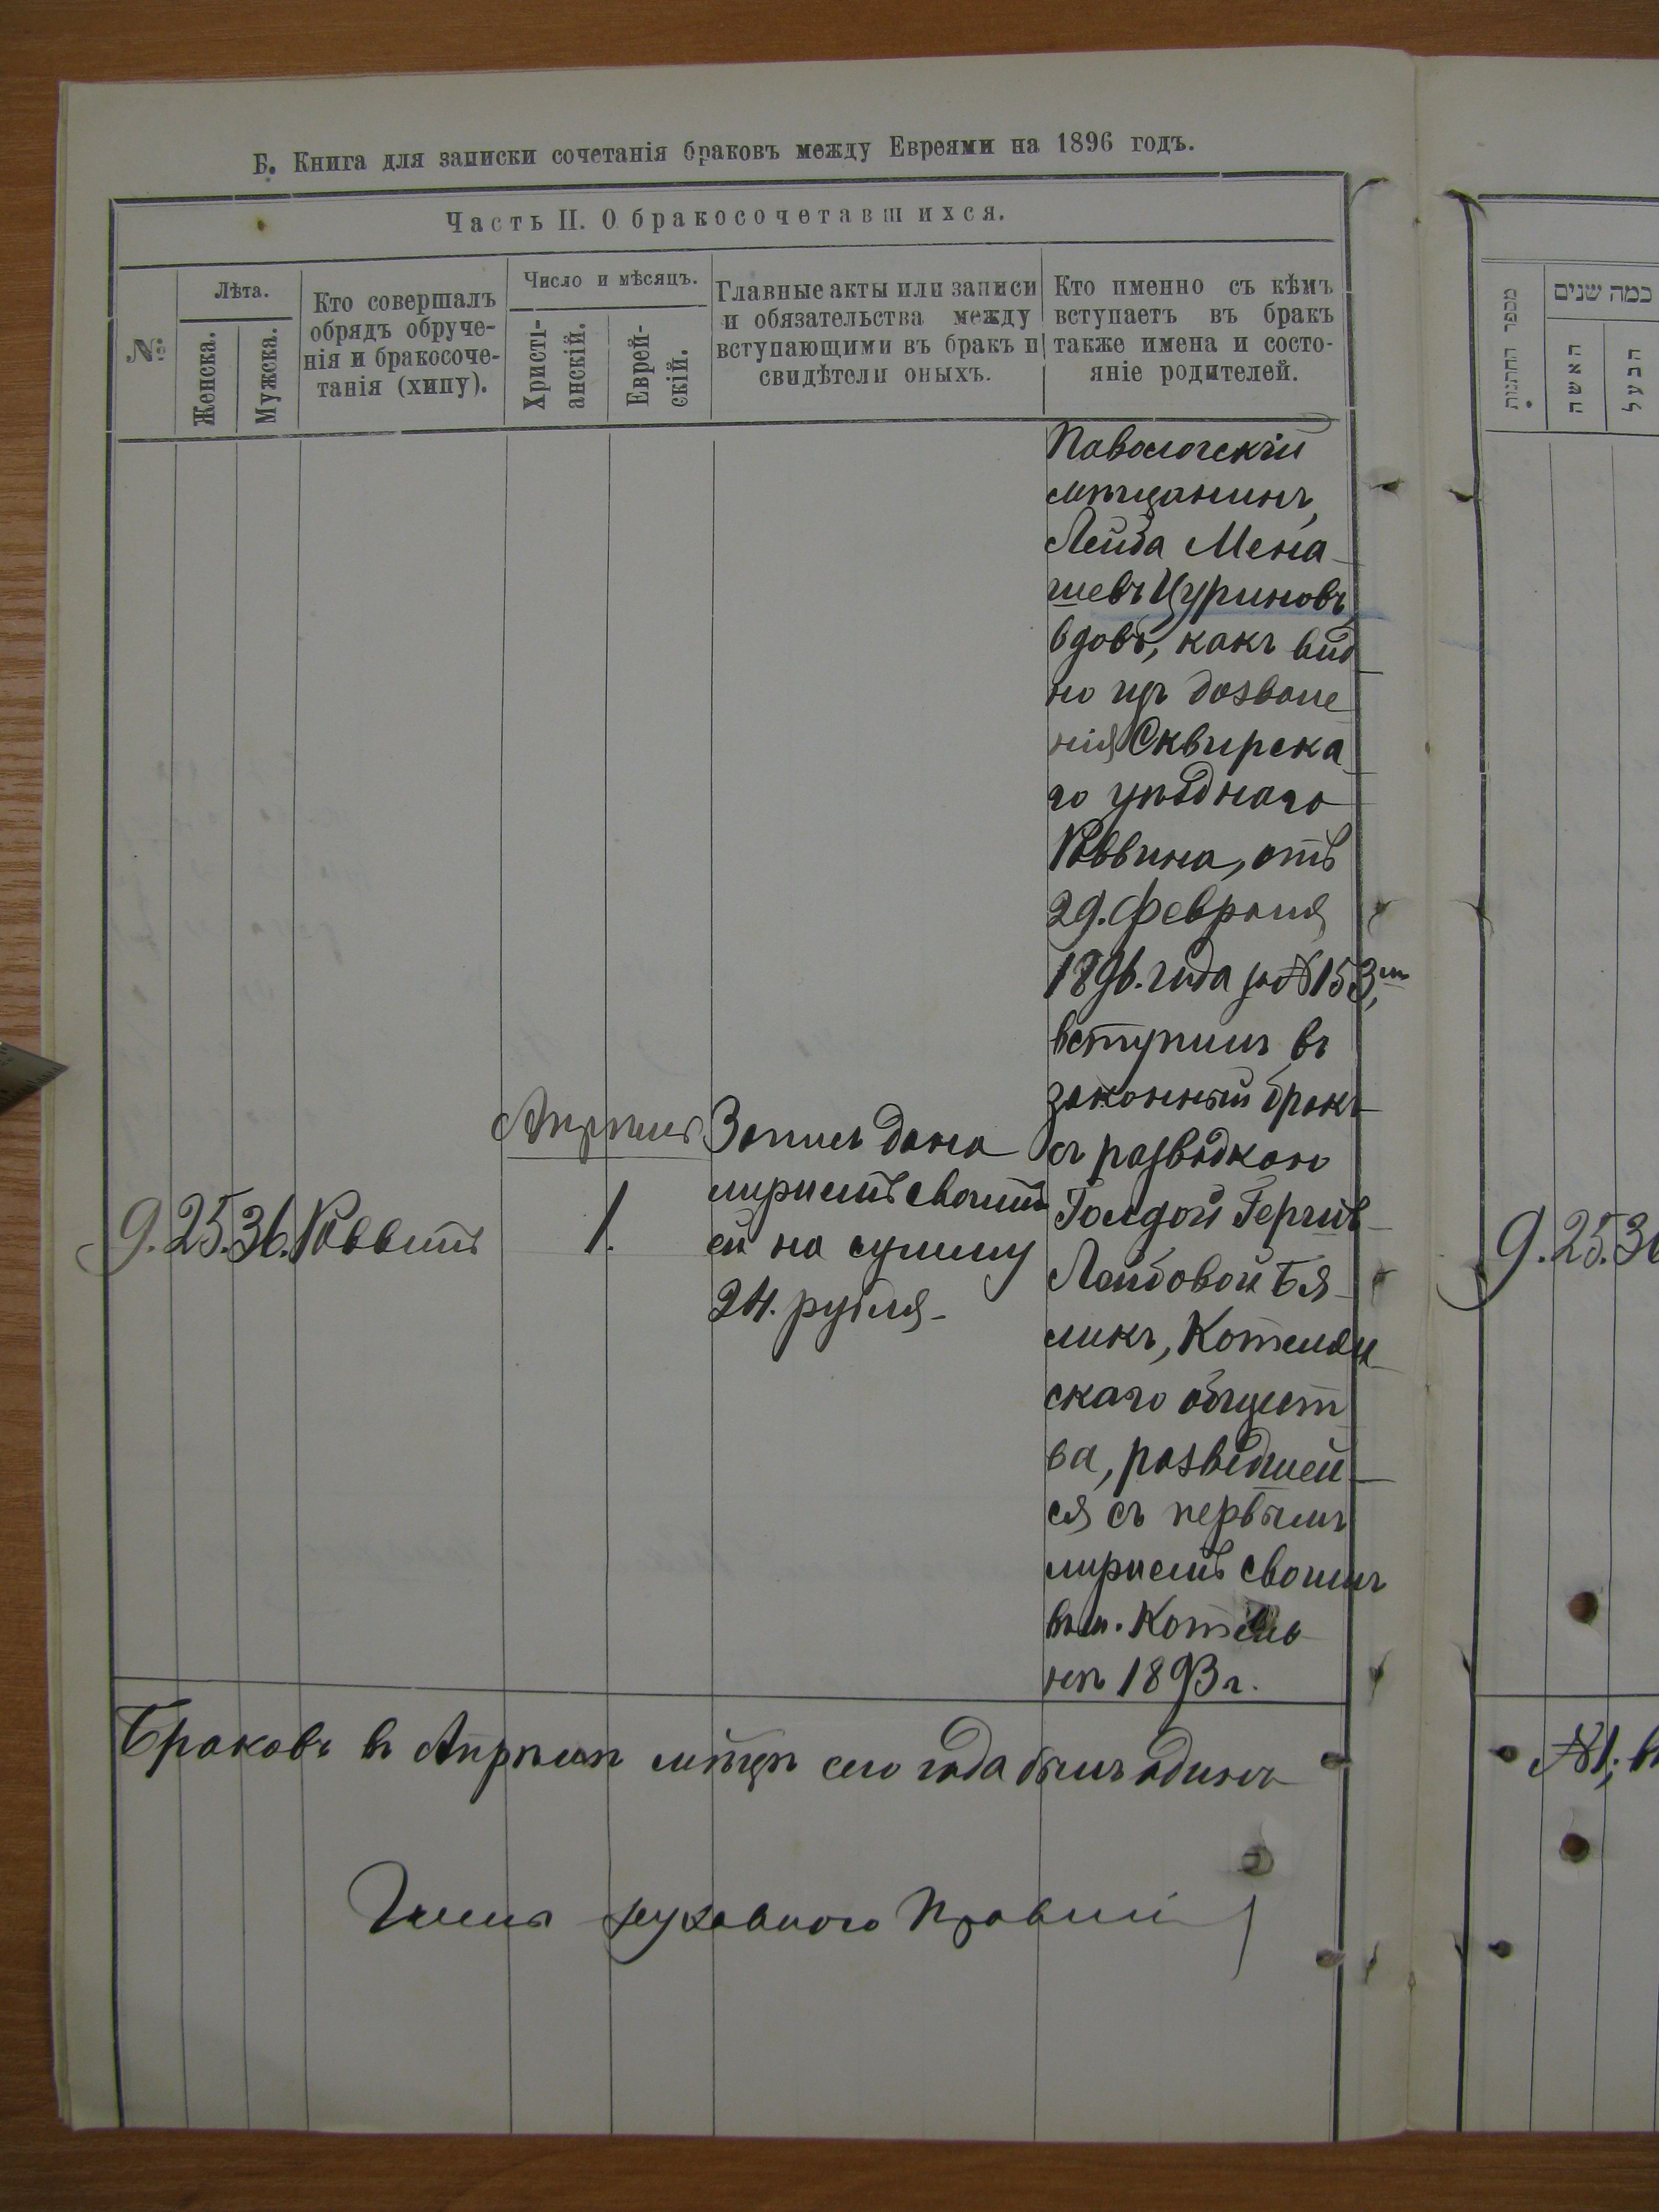 Б. Книга для записки сочетанія браковъ между Евреями на 1896 годъ.
Часть II. О бракосочетавшихся.
№
Лѣта.
Женска.
Мужска.
Кто совершалъ
обрядъ обруче-
нія и бракосоче-
танія (хипу).
Число и мѣсяцъ.
Христі-
анскій.
Еврей-
скій.
Главные акты или записи
и обязательства между
вступающими въ бракъ и
свидѣтели оныхъ.
Кто именно съ кѣмъ
вступаетъ въ бракъ
также имена и состо-
яніе родителей.
9. 25. 36. Раввинъ
Апрѣль
1.
Запись дана
мужемъ своимъ
ей на сумму
24. рубля-
Паволочскій
мѣщанинъ,
Лейба Мена-
шевъ Цуриновъ,
вдовъ, какъ вид
но изъ дозволе
нія Сквирска
го уѣзднаго
Раввина, отъ
29. февраля
1896. года за №153,
вступилъ въ
законный бракъ
съ разводкою
Голдой Герше-
Лейбовой Бя-
ликъ, Котелян-
скаго общест
ва, разведшей-
ся съ первымъ
мужемъ своимъ
въ м. Котель-
нѣ 1893 г.
Браковъ въ Апрѣлѣ мѣсяцѣ сего года былъ одинъ
Члены духовного Правлені
מספר החתנות
כמה שנים
האשה
הבעל
9. 25. 36
№1; въ